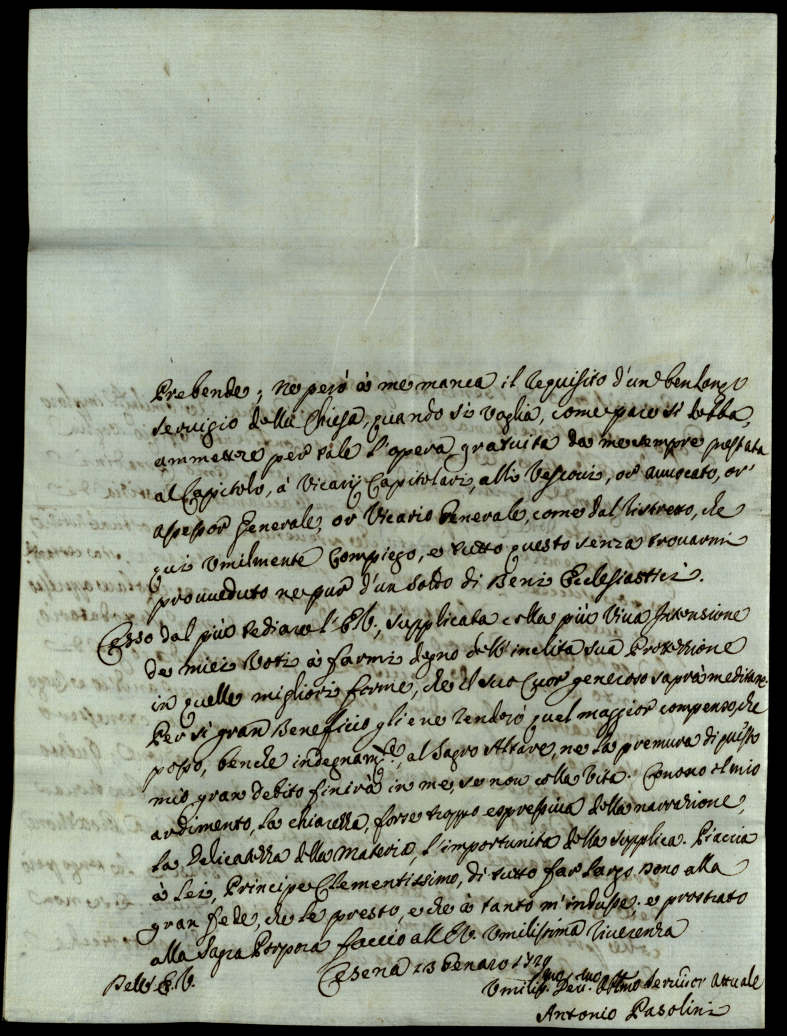 Prebende; ne però à me manca il requisito d'un ben lungo
servigio della Chiesa, quando si voglia, come pare si debba,
ammettere per tale l'opera gratuita da me sempre prestata
al Capitolo, à Vicarij Capitolari, alli Vescovi, or avvocato, or
assessor Generale, or Vicario Generale, come dal ristretto, che
qui umilmente compiego, e tutto questo senza trovarmi
provveduto ne pur d'un soldo di Beni Ecclesiastici.
Cesso dal più tediare l'E.V., supplicata colla più viva Intensione
de miei Voti à farmi degno dell'inclita sua Protezzione
in quelle migliori forme, che il suo Cuor generoso saprà meditare.
Per si gran Beneficio gli ene renderò quel maggior compenso, che
posso, benche indegnam.te, al Sagro Altare, ne la premura di questo
mio gran debito finirà in me, se non colla Vita. Conosco il mio
ardimento, la chiarezza, forse troppo espressiva della narrazione,
la Delicatezza della Materia, l'importunità della supplica. Piaccia
à Lei, Principe Clementissimo, di tutto far largo dono alla
gran fede, che le presto, e che à tanto m'indusse; e prostrato
alla Sagra Porpora faccio all'E.V. umilissima riverenza
Dell'E.V. Cesena 23 Genaro 1729
Umiliss.mo Dev.mo Obb.mo Servitor Attuale
Antonio Pasolini